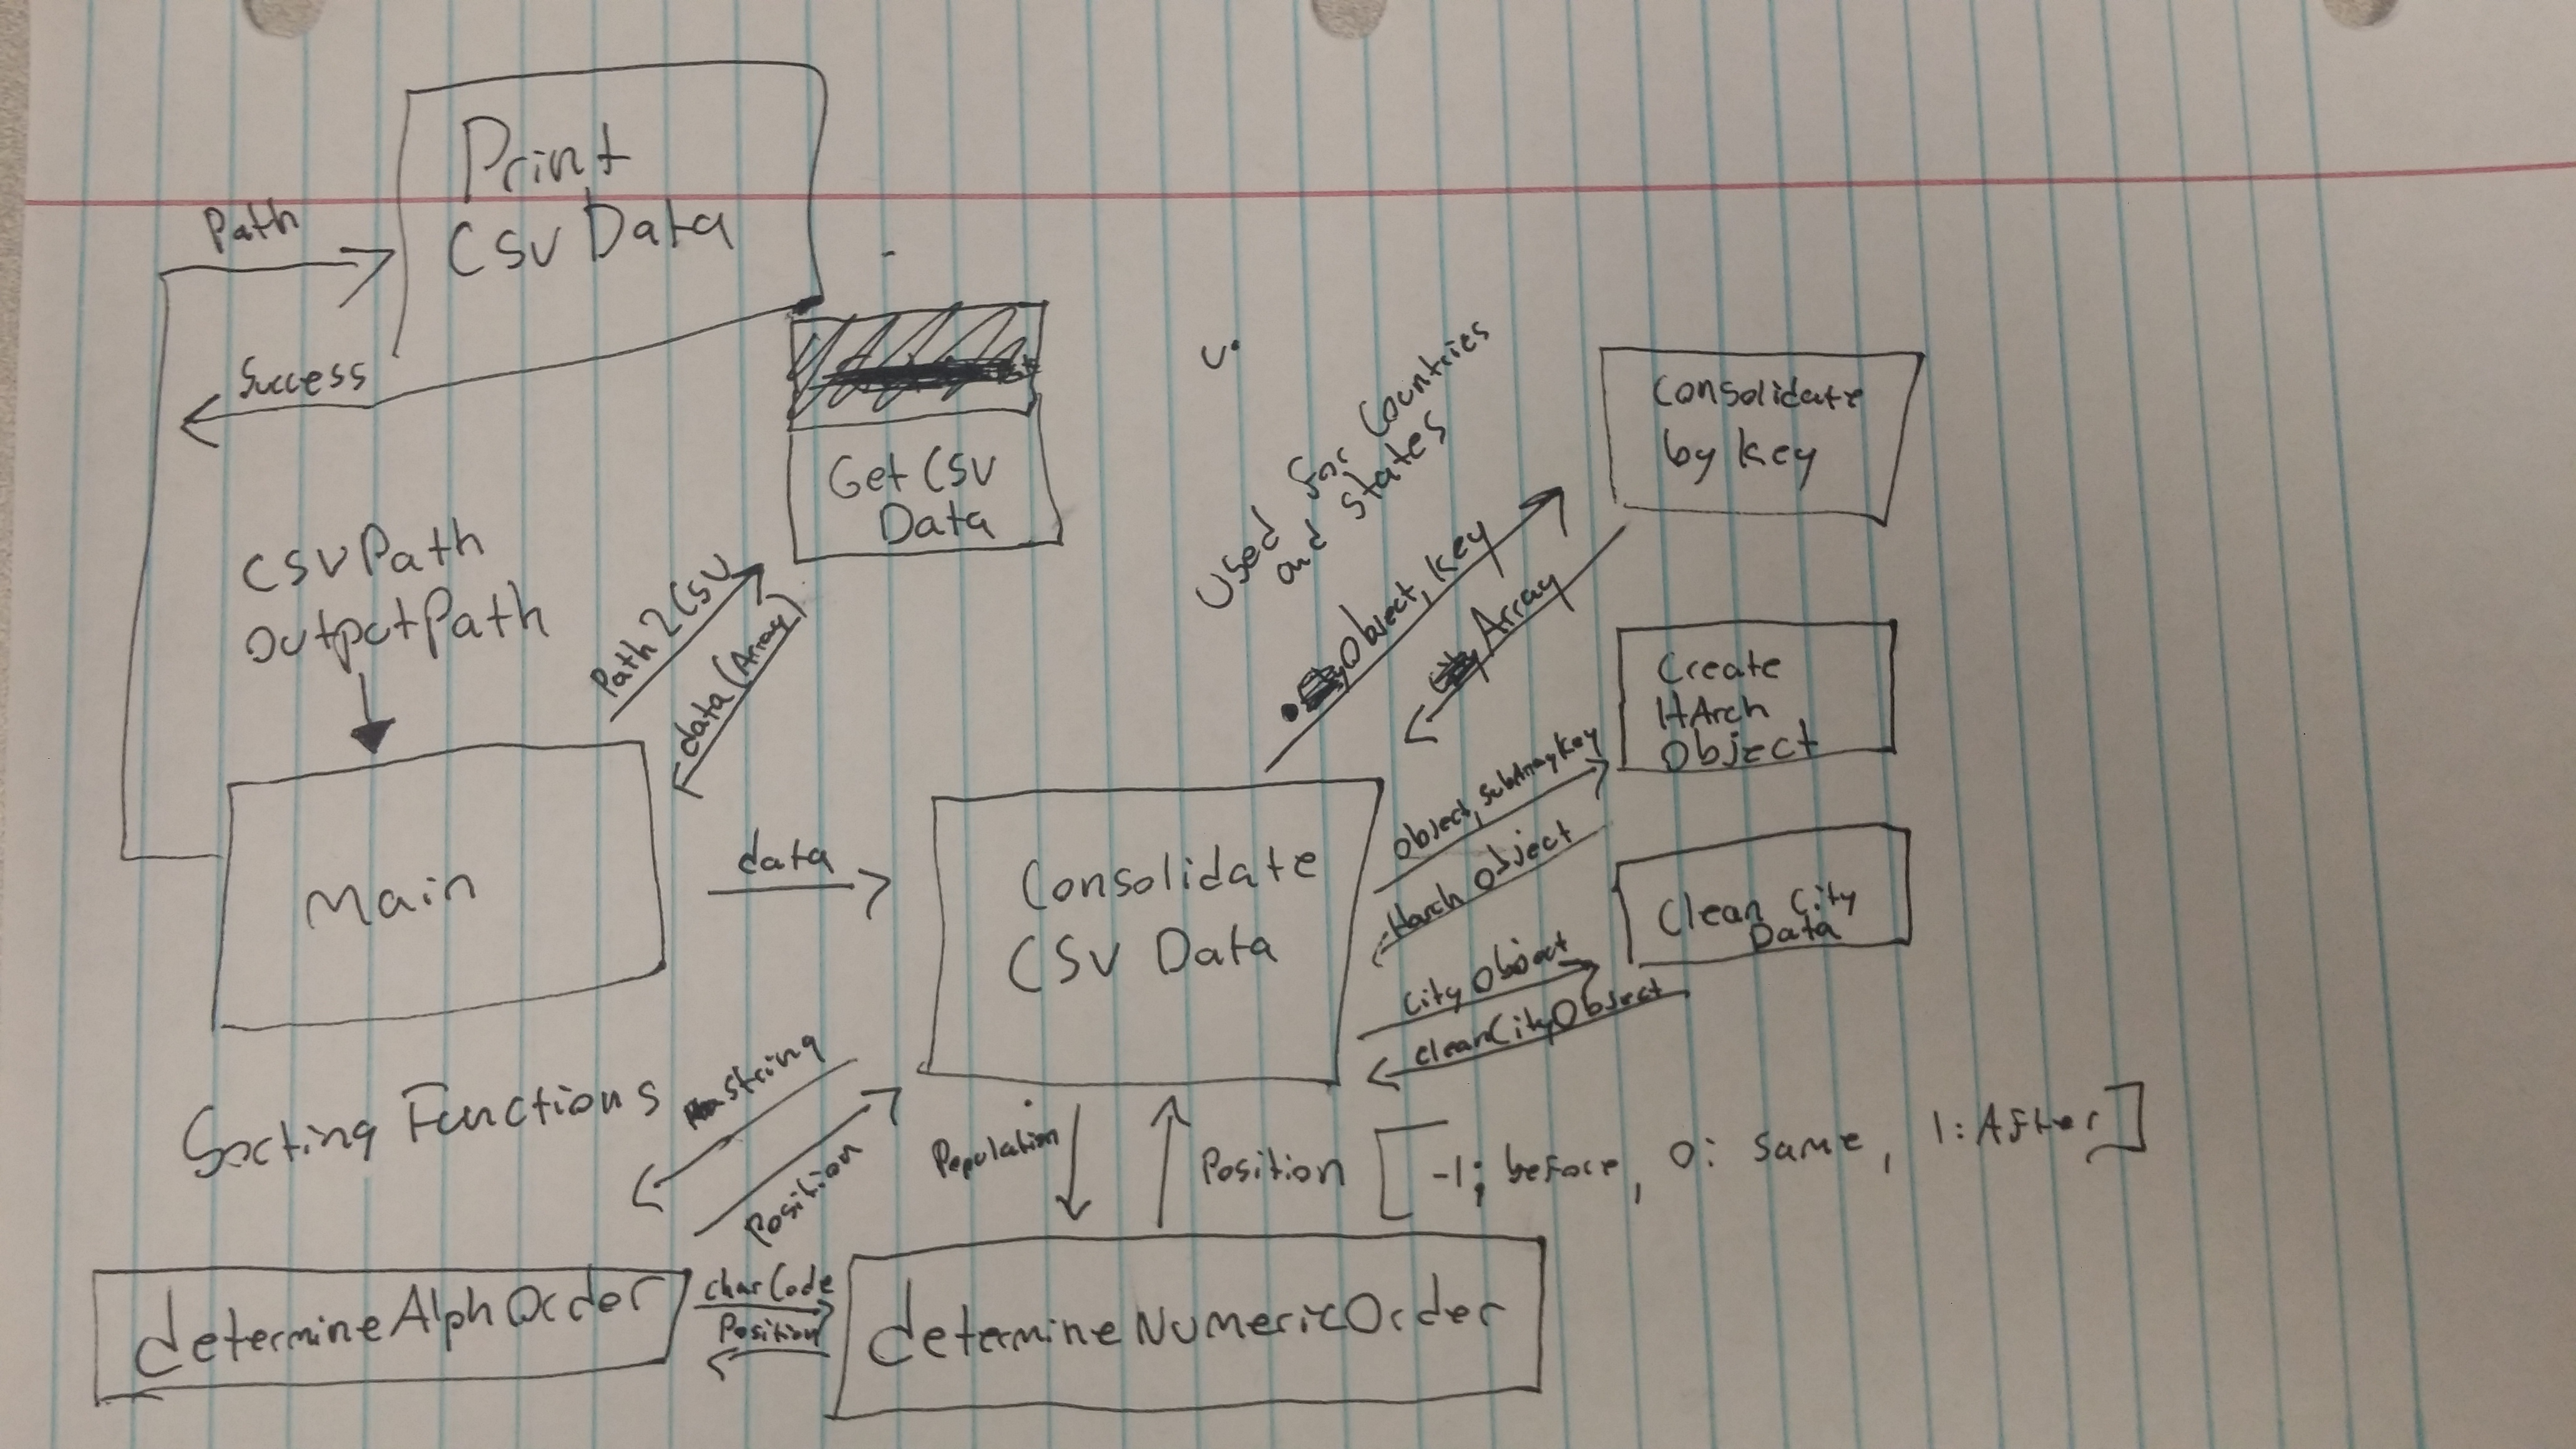 Print
CSV Data
Path
Success
Get CSV
Data
CSVPath
OutputPath
Path 2 CSV
data (Array)
Main
data
Consolidate
CSV Data
Used for Countries
and states
Object, key
Array
Consolidate
by key
Create
HArch
Object
Object, subArrayKey
Harch Object
Clean City
Data
City Object
cleanCityObject
Sorting Functions
String
Position
Population
Position [-1; before, 0: same, 1: After]
determineAlphOrder
charCode
Position
determineNumericOrder